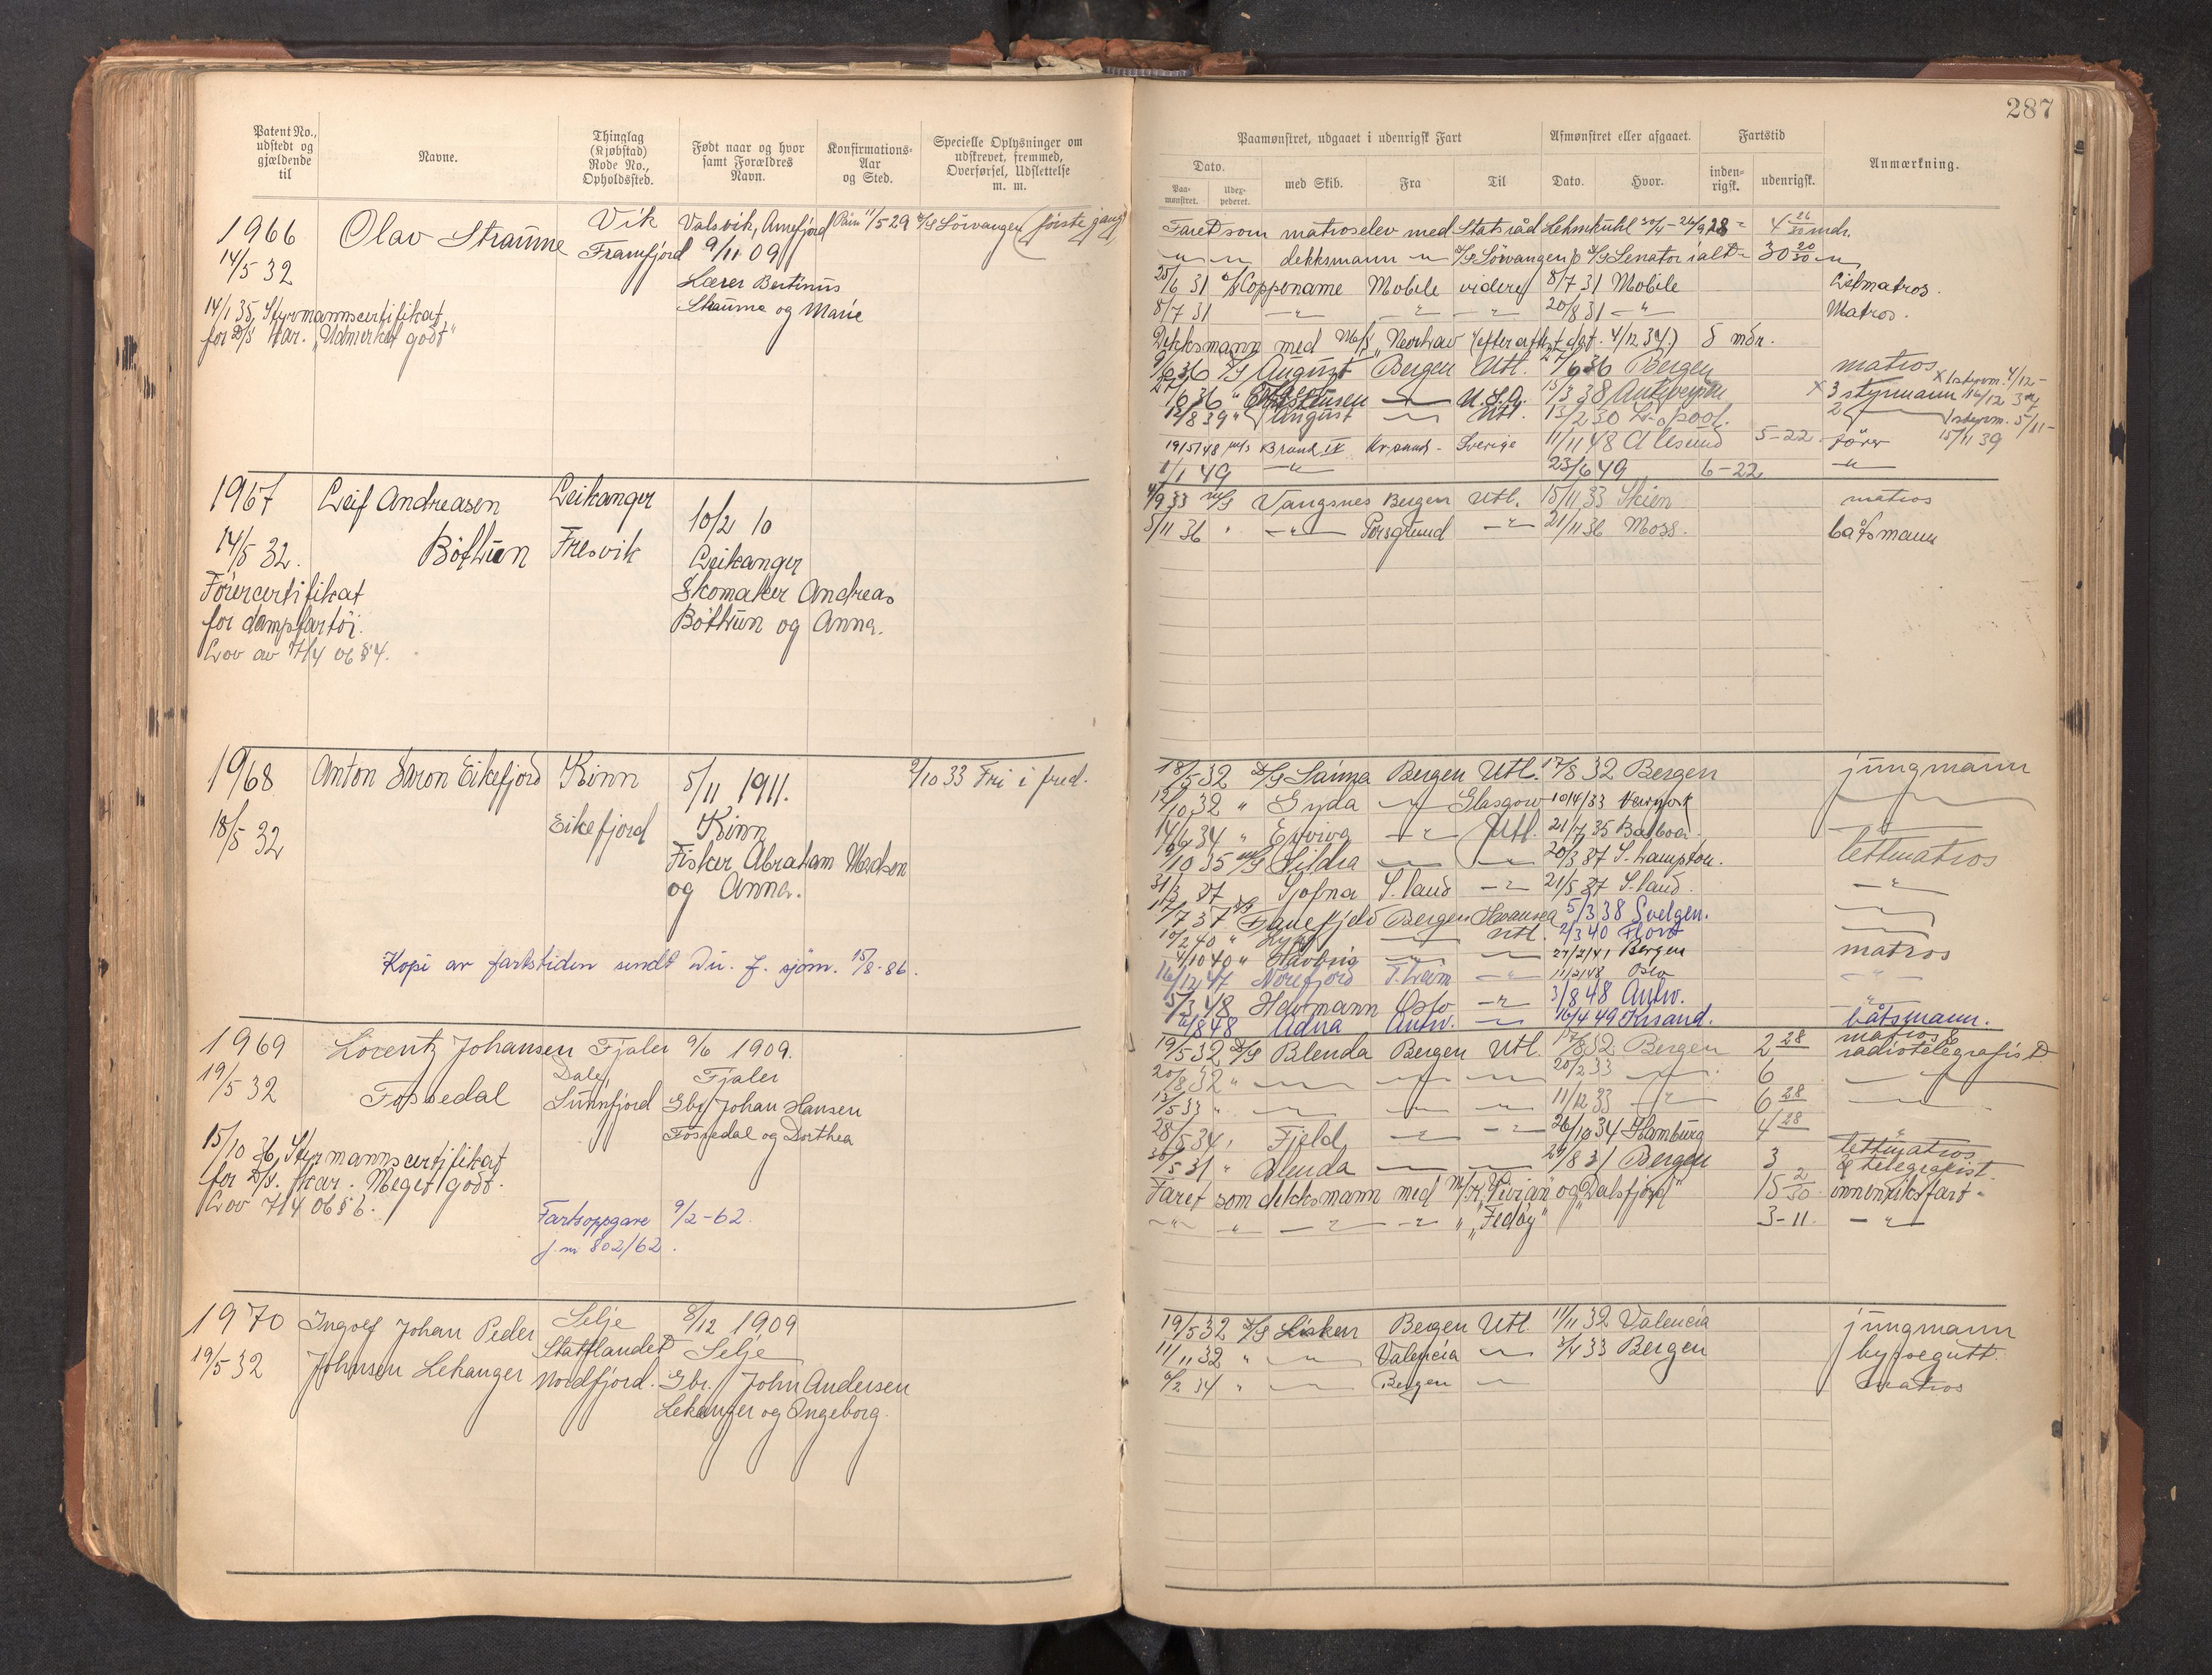 287
Patent No., udstedt og gjældende til
Navne.
Thinglag (Kjøbstad) Rode No., Opholdssted.
Født naar og hvor samt Forældres Navn.
Konfirmations-Aar og Sted.
Specielle Oplysninger om udskrevet, fremmed, Overførsel, Udslettelse m. m.
Paamønstret, udgaaet i udenrigsk Fart
Afmønstret eller afgaaet.
Fartstid
Anmærkning.
Dato.
Paa-mønstret.
Udex-pederet.
med Skib.
Fra
Til
Dato.
Hvor.
inden-rigsk.
udenrigsk.
1966 Olav Straume Vik Valsvik, Arnefjord 11/5 29 D/S Sörvangen (første gang)
14/5 32 Framfjord 9/11 09
Lærer Bertinus
14/1 35, Styrmannscertifikat Straume og Marie
for D/S kar. "Udmerket godt"
Faret som matroselev med Statsråd Lehmkuhl 20/4 - 26/9 28 = 4 26/30 mdr.
dekksmann D/S Sörvangen o D/S Senator ialt = 30 20/30
25/6 31 Coppename Mobile videre 8/7 31 Mobile Lettmatros.
8/7 31 20/8 31 Matros.
Dekksmann med M/S "Nordhav" (efter attest dat. 4/12 34.) 8 mdr.
9/6 36 D/S August Bergen Utl. 27/6 36 Bergen matros
U.S.A. 15/3 38 Antwerpen x 3 styrmann x 1 styrm. 4/12 -
12/8 39 " August Utl. L-pool. 2 1 styrm. 5/11 -
15/11 39
19/5 48 m/s Brand IV Kr.sund - Sverige 11/11 48 Ålesund 5-22 förer
1/1 49 23/6 49 6-22
1967 Leif Andreasen Leikanger 10/2 10
14/5 32. Böthun Fresvik Leikanger
Förercertifikat Skomaker Andreas
for dampfartöi. Böthun og Anna.
Lov av 7/4 06 § 4.
4/9 33 m/S Vangsnes Bergen Utl. 15/11 33 Skien matros
5/11 36 Porsgrund 21/11 36 Moss. båtsmann
1968 Anton Aron Eikefjord Kinn 5/11 1911. 2/10 33 Fri i fred.
18/5 32 Eikefjord Kinn
Fisker Abraham Madson
og Anna.
Kopi av fartstiden sendt Dir. f. sjöm. 15/8-86.
18/5 32 D/S Saima Bergen Utl. 17/8 32 Bergen jungmann
12/10 32 " Gyda Glasgow 10/4/33 Newyork
14/9 34 " Utl. 21/7 35 Balboa.
9/10 35 m/S Sildra 20/3 37 S.hampton. lettmatros
31/3 37 Gjofna S.land 21/5 37 S.land.
17/7 37 D/S Tanefjeld Bergen Swansea 5/3 38 Svelgen.
10/2 40 " Utl. 2/3 40 Florö
4/10 40 " Havbris 27/2/41 Bergen matros
16/12 47 Norefjord T.heim 11/2/48 Oslo
5/3 48 Havmann Oslo 3/8 48 Antw.
4/8 48 Adna Antw. 16/4 49 Krsand. båtsmann.
1969 Lorentz Johansen Fjaler 9/6 1909.
19/5 32 Fossedal Dale, Fjaler
Sunnfjord Gbr. Johan Hansen
Fossedal og Dorthea
15/10 36, Styrmannscertifikat
for D/S. kar. Meget godt.
Lov 7/4 06 § 6.
Fartsoppgave 9/2-62.
j.nr 802/62.
19/5 32 D/S Blenda Bergen Utl. 17/8 32 Bergen 2 28 matros & radiotelegrafist
20/8 32 " 20/2 33 6
13/5 33 " 11/12 33 6 28
28/5 34 " Fjeld 26/10 34 Hamburg 4 28
30/5 31 " Blenda 29/8 31 Bergen 3 lettmatros & telegrafist.
Faret som dekksmann med M/K "Vivian" og "Dalsfjord" 15 2/30 innenriksfart
" "Fedöy" 3-11.
1970 Ingolf Johan Peder Selje 8/12 1909
19/5 32 Johnsen Lekanger Stattlandet Selje
Nordfjord. Gbr. John Andersen
Lekanger og Ingeborg.
19/5 32 D/S Lisken Bergen Utl. 11/11 32 Valencia jungmann
11/11 32 " Valencia 3/4 33 Bergen byssegutt.
6/2 34 " Bergen matros